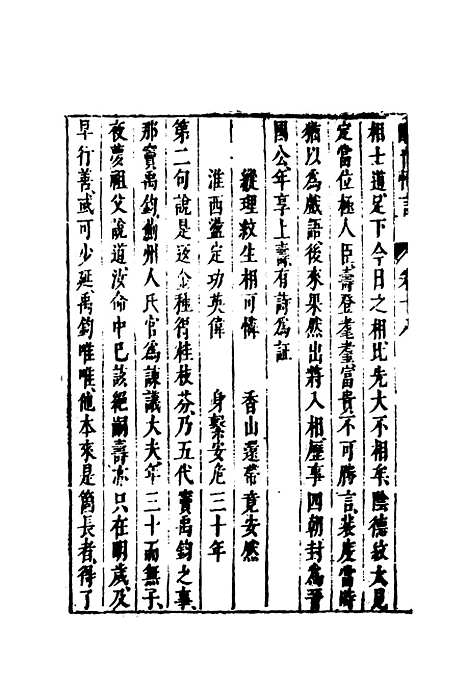 醒世恆言　卷十八
相士道足下今日之相比先大不相牟陰德紋大見
定當位極人臣壽登耄耋富貴不可勝言裴度當時
猶以為戲語後來果然出將入相歷事四朝封為晉
國公年享上壽有詩為証
縱理紋生相可憐　香山還帶竟安然
淮西盪定功英偉　身繫安危三十年
第二句說是返金種得桂枝芬乃五代竇禹鈞之事
那竇禹鈞薊州人氏官為諫議大夫年三十而無子
夜夢祖父說道汝命中已該絕嗣壽亦只在明歲及
早行善或可少延禹鈞唯唯他本來是箇長者得了